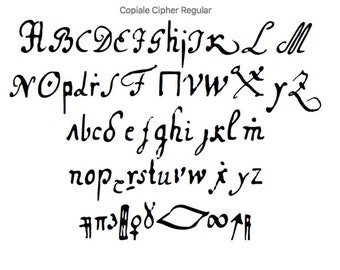 Copiale Cipher Regular
ABCDEFGhijK L M
NOpdṙſF ΠVWX̂yZ
Abcd efghi jklṁ
nopqrstuvw ẋ yz
∞